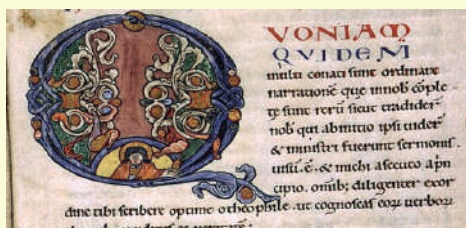 QVONIAM
QVIDEM
multi conati sunt ordinare
narrationē que innob cōple
te sunt rerū sicut tradider̄
nob qui abinitio ipsi uider̄
& ministri fuerunt sermonis.
uisū .ē. & michi asecuto a prin
cipio. omīb; diligenter exor
dine tibi scribere optime otheophile. ut cognoscas eoꝝ uerboꝝ